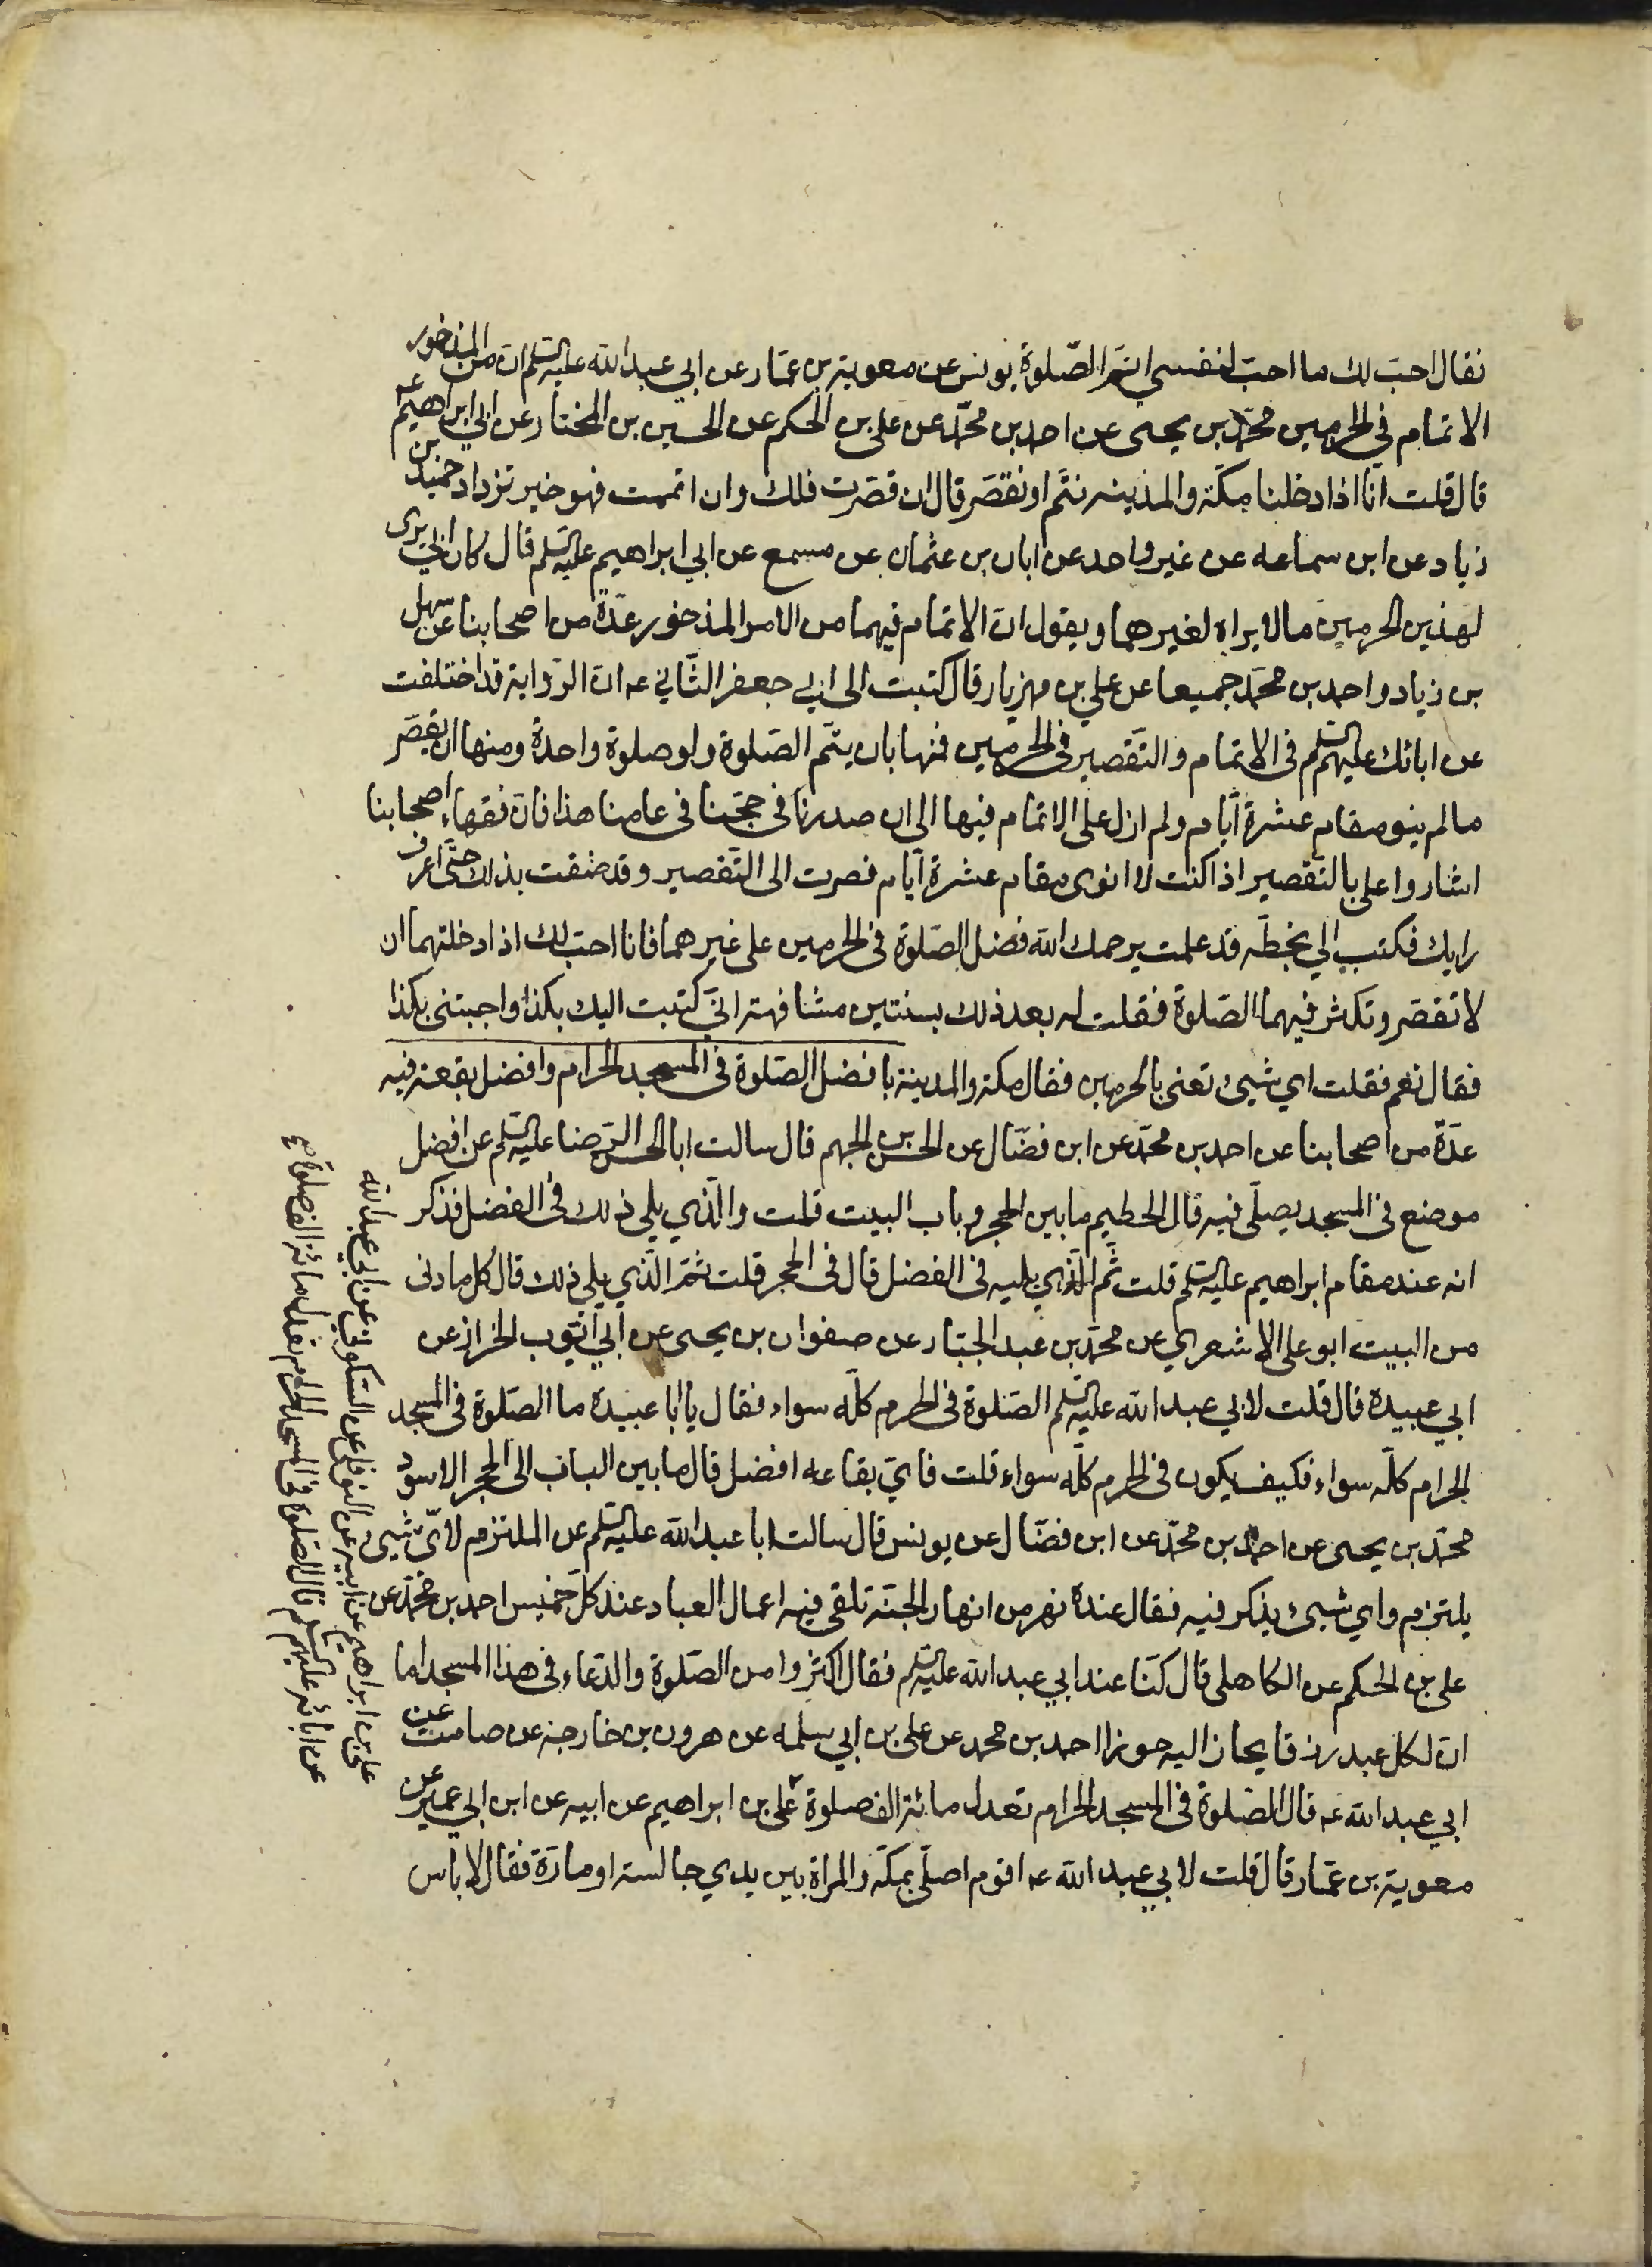 فقال احبّ لك ما احبّ لنفسي اتمّ الصّلوة يونس عن معوية بن عمّار عن ابي عبد الله عليه السلم انّ من المذخور
الاتمام في الحرمين محمّد بن يحيى عن احمد بن محمّد عن علي بن الحكم عن الحسين بن المختار عن ابي ابراهيم عه
قال قلت انّا اذا دخلنا مكّة والمدينة نتمّ او نقصّر قال ان قصّرت فلك وان اتممت فهو خير تزداد حميد بن
زياد عن ابن سماعه عن غير واحد عن ابان بن عثمان عن مسمع عن ابي ابراهيم عليه السلم قال كان ابي يرى
لهذين الحرمين مالا يراه لغيرهما ويقول انّ الاتمام فيهما من الامر المذخور عدّة من اصحابنا عن سهل
بن زياد واحمد بن محمّد جميعا عن علي بن مهزيار قال كتبت الى ابي جعفر الثّاني عه انّ الرّواية قد اختلفت
عن ابائك عليهم السلم في الاتمام والتّقصير في الحرمين فمنها بان يتمّ الصّلوة ولو صلوة واحدة ومنها ان يقصّر
مالم ينو مقام عشرة ايّام ولم ازل على الاتمام فيها الى ان صدرنا في حجّنا في عامنا هذا فانّ فقهاء اصحابنا
اشاروا علي بالتّقصير اذا كنت لا انوى مقام عشرة ايّام فصرت الى التّقصير وقد ضقت بذلك حتّى اعرف
رايك فكتب الي بخطّه قد علمت يرحمك الله فضل الصّلوة في الحرمين على غيرهما فانا احبّ لك اذا دخلتهما ان
لا تقصّر وتكثر فيهما الصّلوة فقلت له بعد ذلك بسنتين مشافهة انّي كتبت اليك بكذا واجبتني بكذا
فقال نعم فقلت اي شيء تعنى بالحرمين فقال مكة والمدينة باب فضل الصّلوة في المسجد الحرام وافضل بقعة فيه
عدّة من اصحابنا عن احمد بن محمّد عن ابن فضّال عن الحسن بن الجهم قال سالت ابا الحسن الرّضا عليه السلم عن افضل
موضع في المسجد يصلّى فيه قال الحطيم ما بين الحجر وباب البيت قلت والّذي يلي ذلك في الفضل فذكر
انه عند مقام ابراهيم عليه السلم قلت ثم الّذي يليه في الفضل قال في الحجر قلت ثمّ الّذي يلي ذلك قال كل ما دنى
من البيت ابو علي الاشعري عن محمّد بن عبد الجبّار عن صفوان بن يحيى عن ابي ايّوب الخراز عن
ابي عبيدة قال قلت لابي عبد الله عليه السلم الصّلوة في الحرم كلّه سواء فقال يا ابا عبيدة ما الصّلوة في المسجد
الحرام كلّه سواء فكيف يكون في الحرم كلّه سواء قلت فايّ بقاعه افضل قال ما بين الباب الى الحجر الاسود
محمّد بن يحيى عن احمد بن محمّد عن ابن فضّال عن يونس قال سالت ابا عبد الله عليه السلم عن الملتزم لايّ شيء
يلتزم واي شيء يذكر فيه فقال عنده نهر من انهار الجنّة تلقى فيه اعمال العباد عند كلّ خميس احمد بن محمّد عن
علي بن الحكم عن الكاهلي قال كنّا عند ابي عبد الله عليه السلم فقال اكثروا من الصّلوة والدّعاء في هذا المسجد اما
انّ لكل عبد رزقا يحاز اليه حوزا احمد بن محمد عن علي بن ابي سلمه عن هرون بن خارجة عن صامت عن
ابي عبد الله عه قال الصّلوة في المسجد الحرام تعدل مائة الف صلوة علي بن ابراهيم عن ابيه عن ابن ابي عمير عن
معوية بن عمّار قال قلت لابي عبد الله عه اقوم اصلّي بمكّة والمراة بين يدي جالسة او مارّة فقال لا باس
علي بن ابراهيم عن ابيه عن النوفلي عن السّكوني عن ابي عبد الله
عن ابائه عليهم السلم قال الصّلوة في المسجد الحرام تعدل مائة الف صلوة